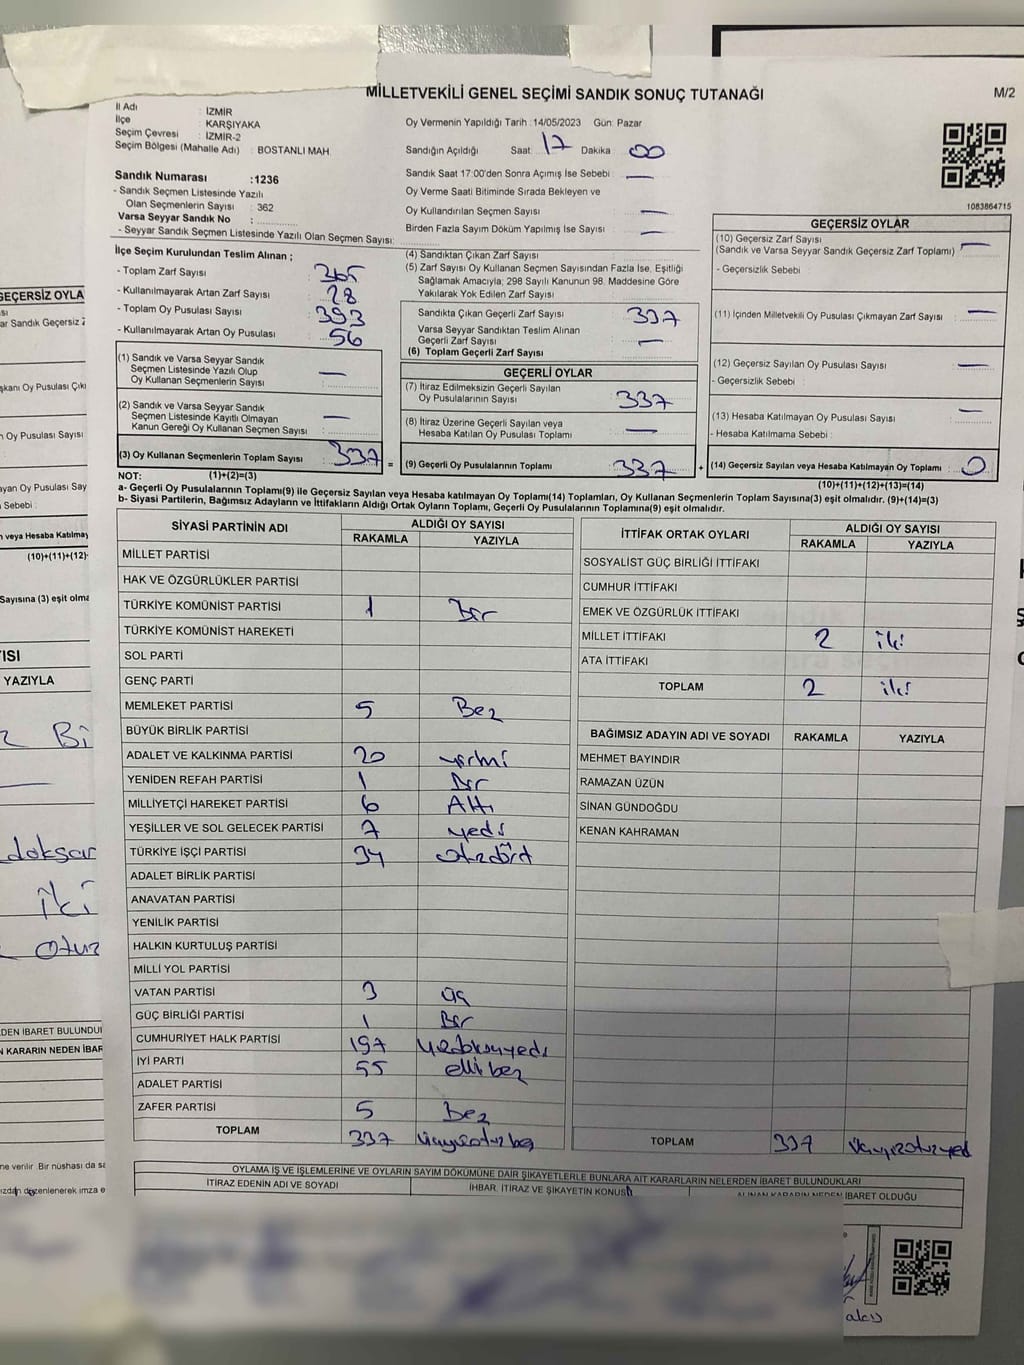 MİLLETVEKİLİ GENEL SEÇİMİ SANDIK SONUÇ TUTANAĞI
M/2
İl Adı : İZMİR
İlçe : KARŞIYAKA
Seçim Çevresi : İZMİR-2
Seçim Bölgesi (Mahalle Adı) : BOSTANLI MAH.
Oy Vermenin Yapıldığı Tarih :14/05/2023 Gün: Pazar
Sandığın Açıldığı Saat: 17 Dakika 00
Sandık Saat 17:00'den Sonra Açımış İse Sebebi : —
Oy Verme Saati Bitiminde Sırada Bekleyen ve
Oy Kullandırılan Seçmen Sayısı —
Birden Fazla Sayım Döküm Yapılmış İse Sayısı —
1083864715
Sandık Numarası :1236
- Sandık Seçmen Listesinde Yazılı
Olan Seçmenlerin Sayısı : 362
Varsa Seyyar Sandık No :
- Seyyar Sandık Seçmen Listesinde Yazılı Olan Seçmen Sayısı:
İlçe Seçim Kurulundan Teslim Alınan ;
- Toplam Zarf Sayısı : 365
- Kullanılmayarak Artan Zarf Sayısı : 28
- Toplam Oy Pusulası Sayısı : 393
- Kullanılmayarak Artan Oy Pusulası : 56
(1) Sandık ve Varsa Seyyar Sandık
Seçmen Listesinde Yazılı Olup
Oy Kullanan Seçmenlerin Sayısı : —
(2) Sandık ve Varsa Seyyar Sandık
Seçmen Listesinde Kayıtlı Olmayan
Kanun Gereği Oy Kullanan Seçmen Sayısı : —
(3) Oy Kullanan Seçmenlerin Toplam Sayısı : 337
(4) Sandıktan Çıkan Zarf Sayısı :
(5) Zarf Sayısı Oy Kullanan Seçmen Sayısından Fazla İse, Eşitliği
Sağlamak Amacıyla; 298 Sayılı Kanunun 98. Maddesine Göre
Yakılarak Yok Edilen Zarf Sayısı :
Sandıkta Çıkan Geçerli Zarf Sayısı : 337
Varsa Seyyar Sandıktan Teslim Alınan
Geçerli Zarf Sayısı : —
(6) Toplam Geçerli Zarf Sayısı
GEÇERLİ OYLAR
(7) İtiraz Edilmeksizin Geçerli Sayılan
Oy Pusulalarının Sayısı : 337
(8) İtiraz Üzerine Geçerli Sayılan veya
Hesaba Katılan Oy Pusulası Toplamı : —
= (9) Geçerli Oy Pusulalarının Toplamı 337
GEÇERSİZ OYLAR
(10) Geçersiz Zarf Sayısı
(Sandık ve Varsa Seyyar Sandık Geçersiz Zarf Toplamı) —
- Geçersizlik Sebebi :
(11) İçinden Milletvekili Oy Pusulası Çıkmayan Zarf Sayısı : —
(12) Geçersiz Sayılan Oy Pusulası Sayısı : —
- Geçersizlik Sebebi :
(13) Hesaba Katılmayan Oy Pusulası Sayısı : —
- Hesaba Katılmama Sebebi :
+ (14) Geçersiz Sayılan veya Hesaba Katılmayan Oy Toplamı : 0
NOT: (1)+(2)=(3)
(10)+(11)+(12)+(13)=(14)
a- Geçerli Oy Pusulalarının Toplamı(9) ile Geçersiz Sayılan veya Hesaba katılmayan Oy Toplamı(14) Toplamları, Oy Kullanan Seçmenlerin Toplam Sayısına(3) eşit olmalıdır. (9)+(14)=(3)
b- Siyasi Partilerin, Bağımsız Adayların ve İttifakların Aldığı Ortak Oyların Toplamı, Geçerli Oy Pusulalarının Toplamına(9) eşit olmalıdır.
SİYASİ PARTİNİN ADI ALDIĞI OY SAYISI
RAKAMLA YAZIYLA
MİLLET PARTİSİ
HAK VE ÖZGÜRLÜKLER PARTİSİ
TÜRKİYE KOMÜNİST PARTİSİ 1 Bir
TÜRKİYE KOMÜNİST HAREKETİ
SOL PARTİ
GENÇ PARTİ
MEMLEKET PARTİSİ 5 Beş
BÜYÜK BİRLİK PARTİSİ
ADALET VE KALKINMA PARTİSİ 20 yirmi
YENİDEN REFAH PARTİSİ 1 Bir
MİLLİYETÇİ HAREKET PARTİSİ 6 Altı
YEŞİLLER VE SOL GELECEK PARTİSİ 7 yedi
TÜRKİYE İŞÇİ PARTİSİ 34 otuzdört
ADALET BİRLİK PARTİSİ
ANAVATAN PARTİSİ
YENİLİK PARTİSİ
HALKIN KURTULUŞ PARTİSİ
MİLLİ YOL PARTİSİ
VATAN PARTİSİ 3 üç
GÜÇ BİRLİĞİ PARTİSİ 1 Bir
CUMHURİYET HALK PARTİSİ 197 yüzdoksanyedi
İYİ PARTİ 55 elli beş
ADALET PARTİSİ
ZAFER PARTİSİ 5 Beş
TOPLAM 337
İTTİFAK ORTAK OYLARI ALDIĞI OY SAYISI
RAKAMLA YAZIYLA
SOSYALİST GÜÇ BİRLİĞİ İTTİFAKI
CUMHUR İTTİFAKI
EMEK VE ÖZGÜRLÜK İTTİFAKI
MİLLET İTTİFAKI 2 iki
ATA İTTİFAKI
TOPLAM 2 iki
BAĞIMSIZ ADAYIN ADI VE SOYADI RAKAMLA YAZIYLA
MEHMET BAYINDIR
RAMAZAN ÜZÜN
SİNAN GÜNDOĞDU
KENAN KAHRAMAN
TOPLAM 337 üçyüzotuzyedi
OYLAMA İŞ VE İŞLEMLERİNE VE OYLARIN SAYIM DÖKÜMÜNE DAİR ŞİKAYETLERLE BUNLARA AİT KARARLARIN NELERDEN İBARET BULUNDUKLARI
İTİRAZ EDENİN ADI VE SOYADI İHBAR, İTİRAZ VE ŞİKAYETİN KONUSU ALINAN KARARIN NEDEN İBARET OLDUĞU
GEÇERSİZ OYLA
ar Sandık Geçersiz Z
şkanı Oy Pusulası Çıkı
n Oy Pusulası Sayısı
ayan Oy Pusulası Say
Sebebi :
n veya Hesaba Katılmay
(10)+(11)+(12)
Sayısına (3) eşit olma
ISI
YAZIYLA
Bi
doksan
iki
otuz
DEN İBARET BULUNDU
N KARARIN NEDEN İBAR
ne verilir. Bir nüshası da sa
ızdan düzenlenerek imza e